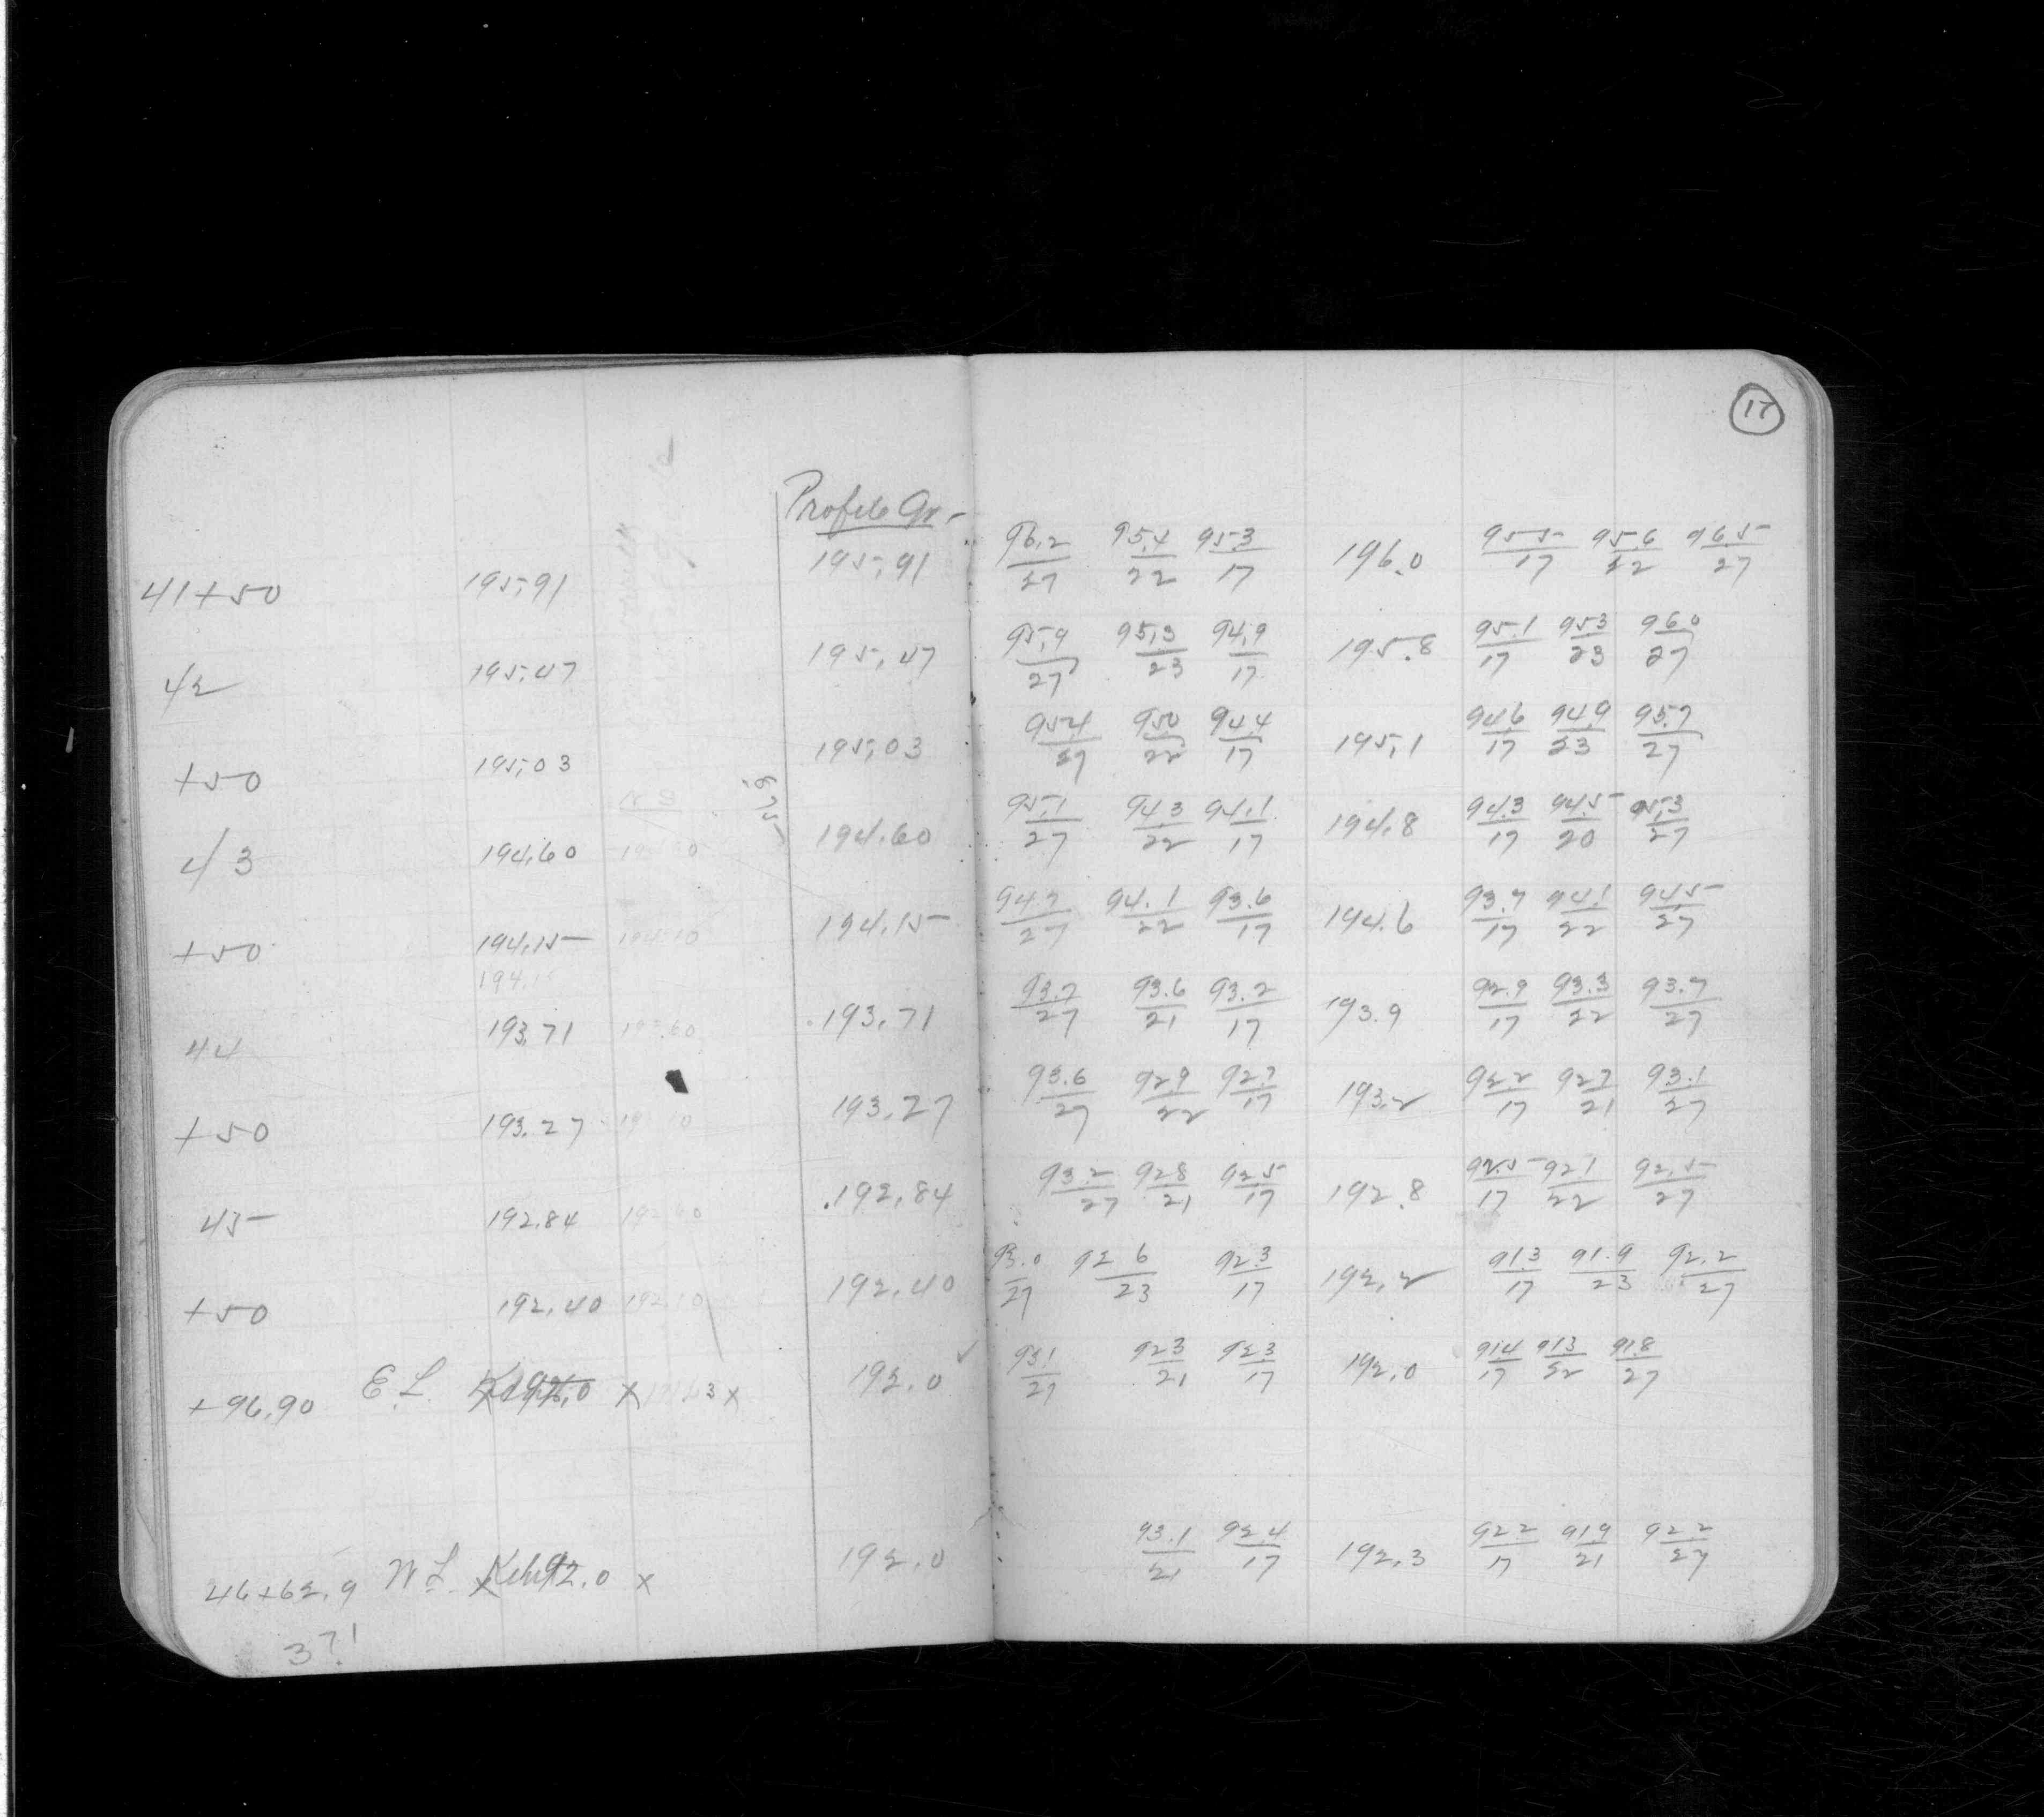 17
Profile Gr.
41+50 195.91 195.91 96.2/27 95.4/22 95.3/17 196.0 95.5/17 95.6/22 96.5/27
42 195.47 195.47 95.9/27 95.3/23 94.9/17 195.8 95.1/17 95.3/23 96.0/27
+50 195.03 195.03 95.4/27 95.0/22 94.4/17 195.1 94.6/17 94.9/23 95.7/27
43 194.60 194.60 95.1/27 94.3/22 94.1/17 194.8 94.3/17 94.5/20 95.3/27
+50 194.15 194.10 194.15 94.7/27 94.1/22 93.6/17 194.6 93.7/17 94.1/22 94.5/27
44 193.71 193.60 193.71 93.7/27 93.6/21 93.2/17 193.9 92.9/17 93.3/22 93.7/27
+50 193.27 193.27 93.6/27 92.9/22 92.7/17 193.2 92.2/17 92.7/21 93.1/27
45 192.84 192.84 93.2/27 92.8/21 92.5/17 192.8 92.5/17 92.1/22 92.5/27
+50 192.40 192.10 192.40 93.0/27 92.6/23 92.3/17 192.2 91.3/17 91.9/23 92.2/27
+96.90 E.L. x x 192.0 93.1/27 92.3/21 92.3/17 192.0 91.4/17 91.3/22 91.8/27
46+62.9 W.L. 192.0 x 192.0 93.1/21 92.4/17 192.3 92.2/17 91.9/21 92.2/27
3?!